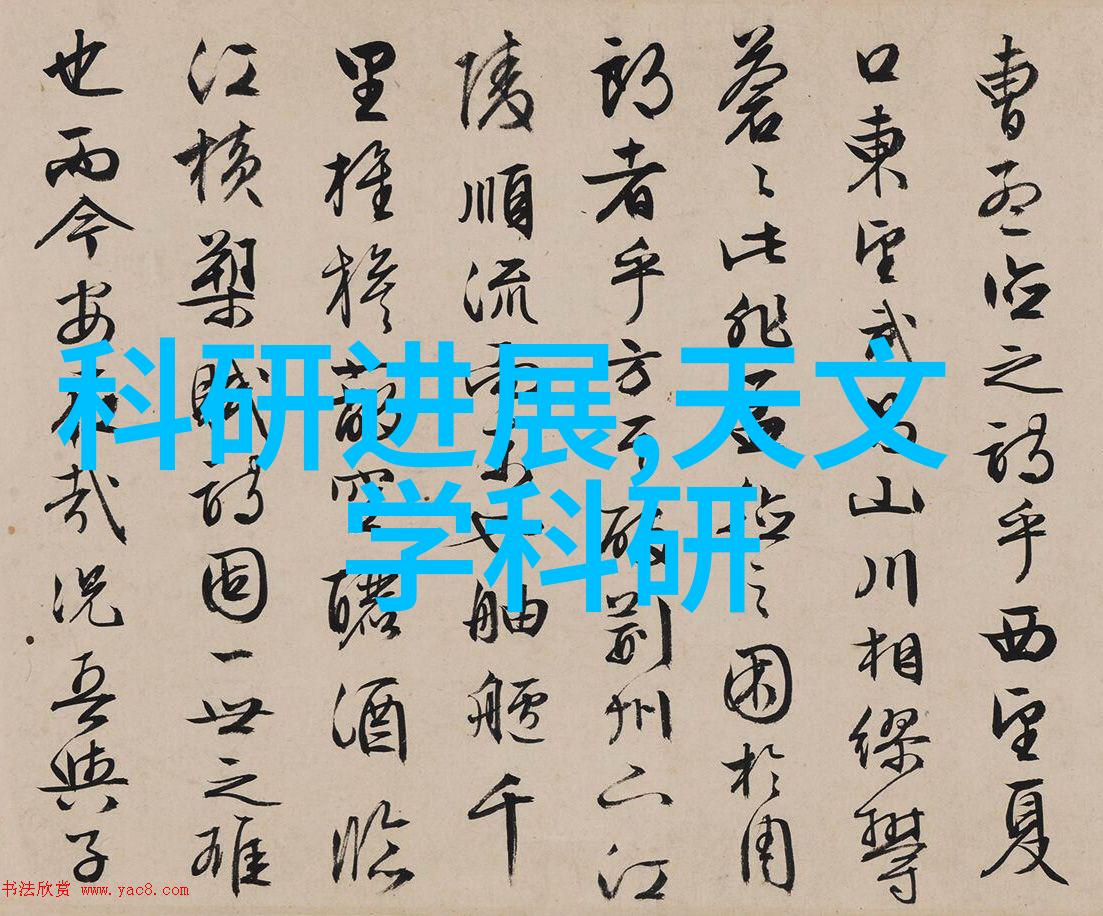 曹孟德之詩乎西望夏
口東望武昌山川相繆鬱
蒼〻此非孟德之困於周
郎者乎方其破荊州下江
陵順流而東也舳艫千
里旌旗蔽空釃酒臨
江橫槊賦詩固一世之雄
也而今安在哉況吾與子
科研进展,天文
学科研
书法欣赏 www.yac8.com